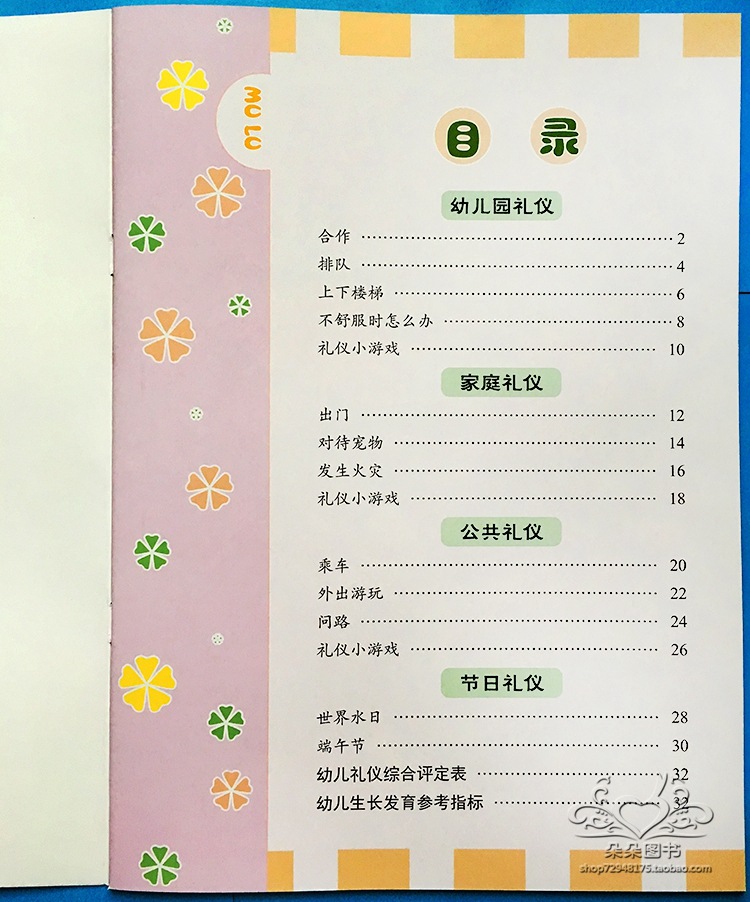 MU LU
目 录
幼儿园礼仪
合作 …… 2
排队 …… 4
上下楼梯 …… 6
不舒服时怎么办 …… 8
礼仪小游戏 …… 10
家庭礼仪
出门 …… 12
对待宠物 …… 14
发生火灾 …… 16
礼仪小游戏 …… 18
公共礼仪
乘车 …… 20
外出游玩 …… 22
问路 …… 24
礼仪小游戏 …… 26
节日礼仪
世界水日 …… 28
端午节 …… 30
幼儿礼仪综合评定表 …… 32
幼儿生长发育参考指标 …… 32
朵朵图书
shop72948175.taobao.com